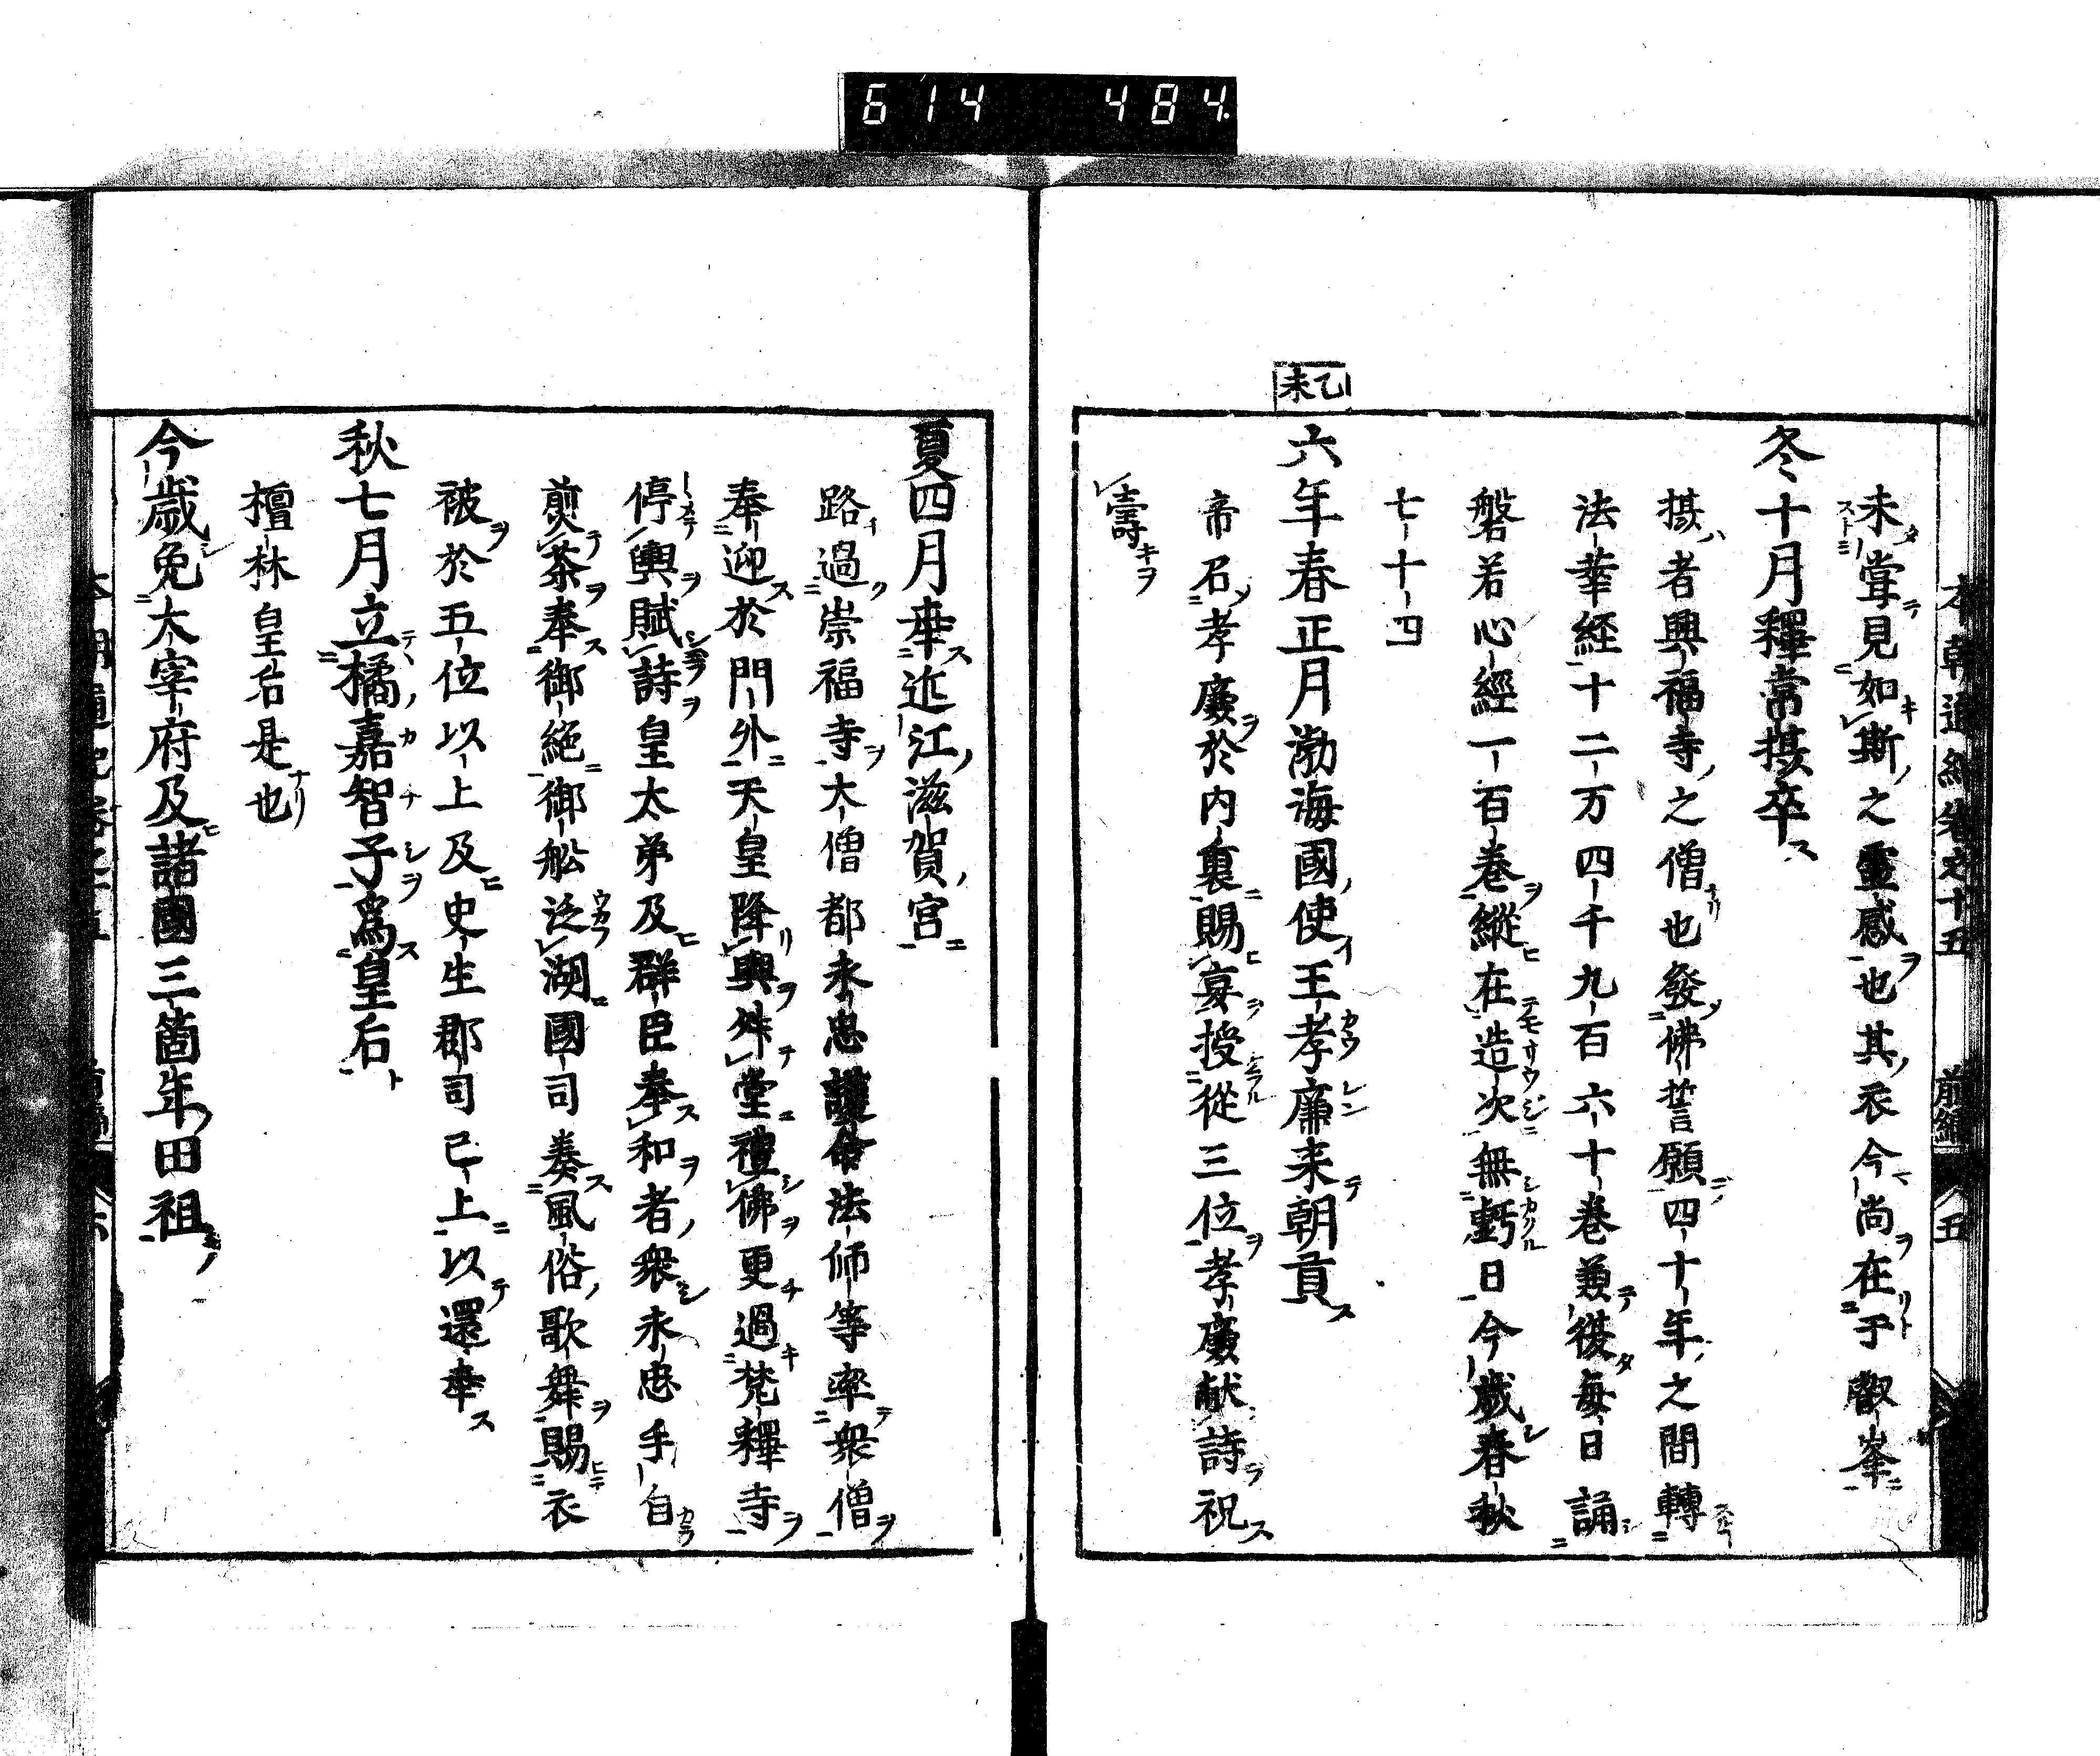 614 484
本朝通紀卷之十五 前編 五
未甞見如斯之靈感也其衣今尚在于叡峯
冬十月釋常摂卒
摂者興福寺之僧也發佛誓願四十年之間轉
法華経十二万四千九百六十巻兼復毎日誦
磐若心經一百巻縱在造次無虧日今歳春秋
七十四
乙未
六年春正月渤海國使王孝廉来朝貢
帝召孝廉於内裏賜宴授從三位孝廉献詩祝
壽
夏四月幸近江滋賀宮
路過崇福寺大僧都永忠護命法师等率衆僧
奉迎於門外天皇降輿舛堂禮佛更過梵釋寺
停輿賦詩皇太弟及群臣奉和者衆永忠手自
煎茶奉御絁御舩泛湖國司奏風俗歌舞賜衣
被於五位以上及史生郡司已上以還幸
秋七月立橘嘉智子爲皇后
檀林皇后是也
今歳免太宰府及諸國三箇年田祖